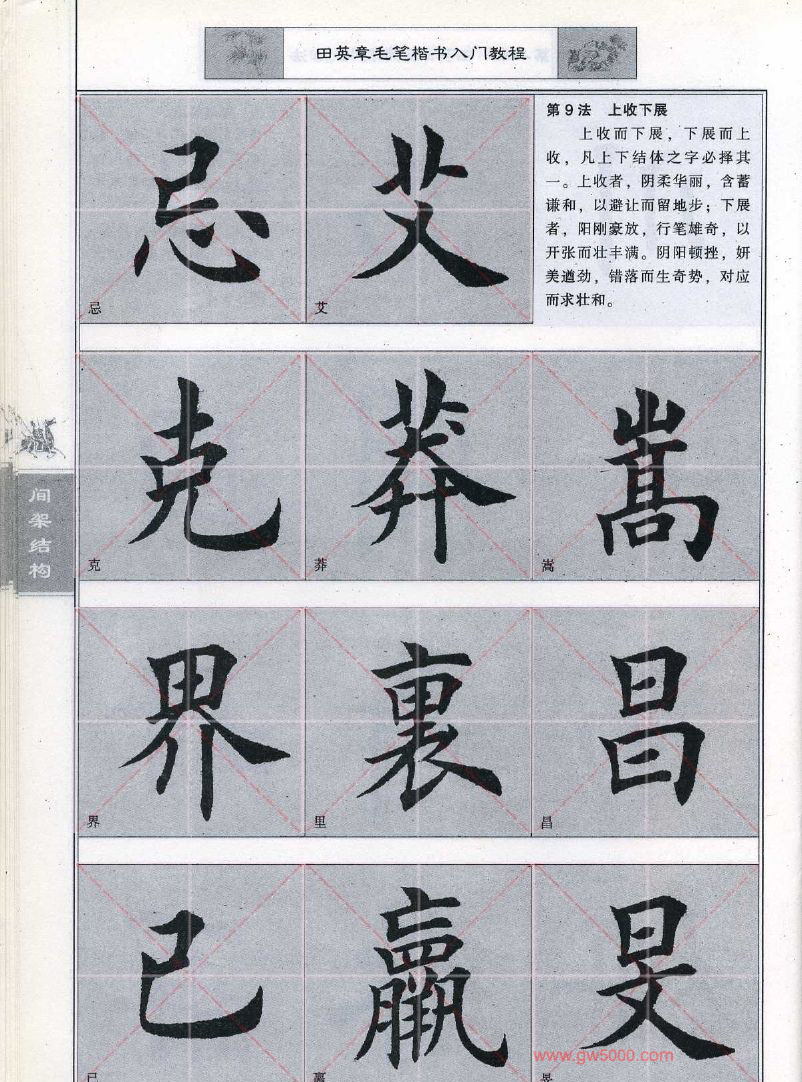 田英章毛笔楷书入门教程
第9法 上收下展
上收而下展，下展而上
收，凡上下结体之字必择其
一。上收者，阴柔华丽，含蓄
谦和，以避让而留地步；下展
者，阳刚豪放，行笔雄奇，以
开张而壮丰满。阴阳顿挫，妍
美遒劲，错落而生奇势，对应
而求壮和。
忌 艾
忌 艾
克 莽 嵩
克 莽 嵩
界 裏 昌
界 里 昌
已 羸 旻
间架结构
www.gw5000.com